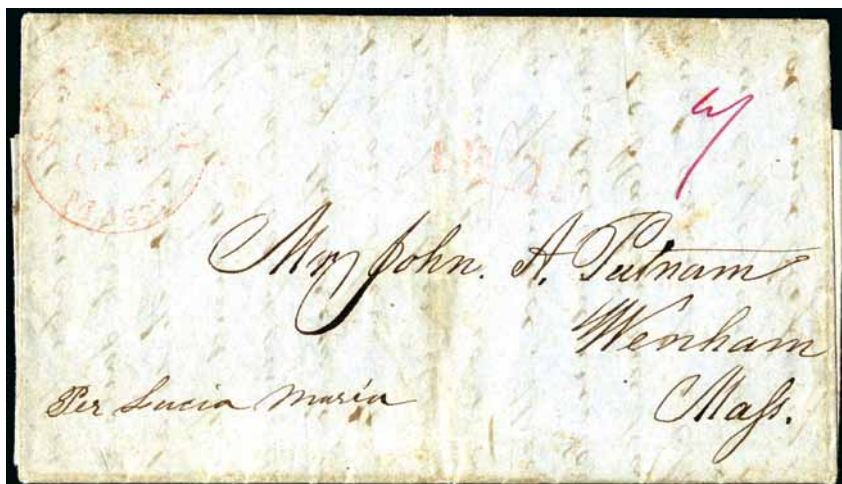 7
MASS
Mr John. A. Putnam
Wenham
Mass.
Per Lucia Maria